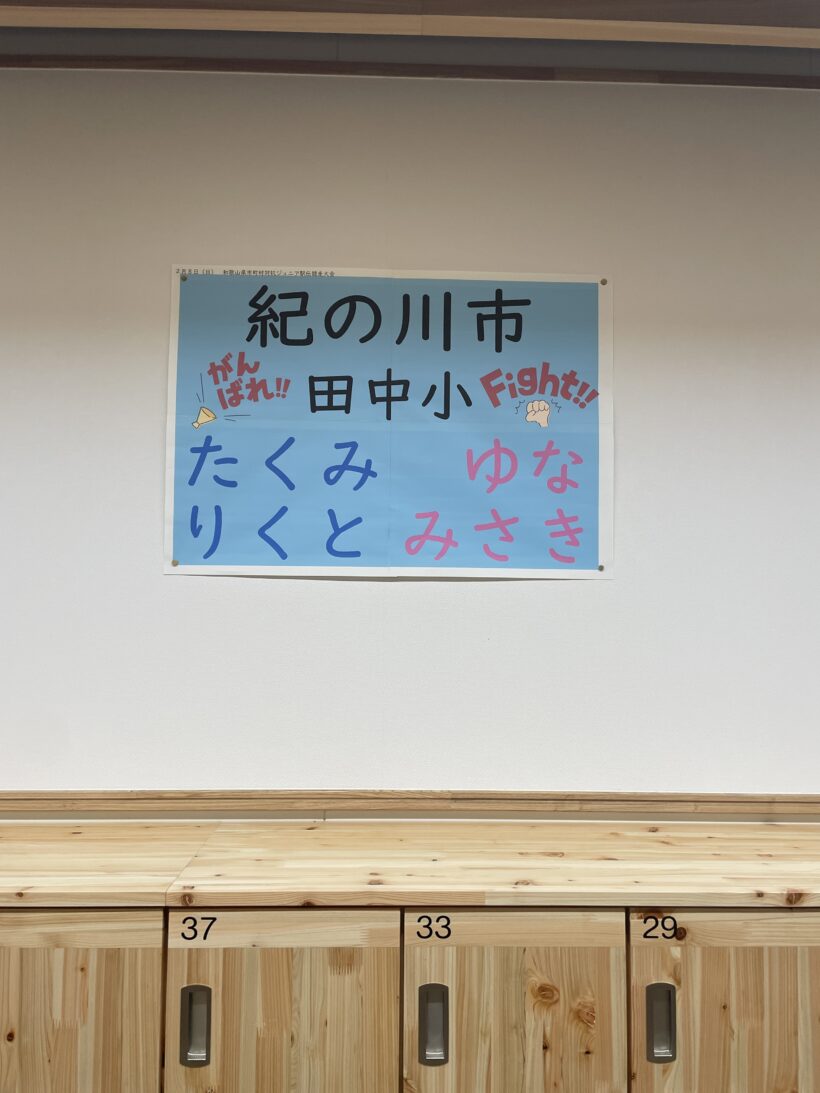 2月8日（日）　和歌山県市町村対抗ジュニア駅伝競走大会
紀の川市
がん
ばれ!!
田中小
Fight!!
たくみ　ゆな
りくと　みさき
37
33
29